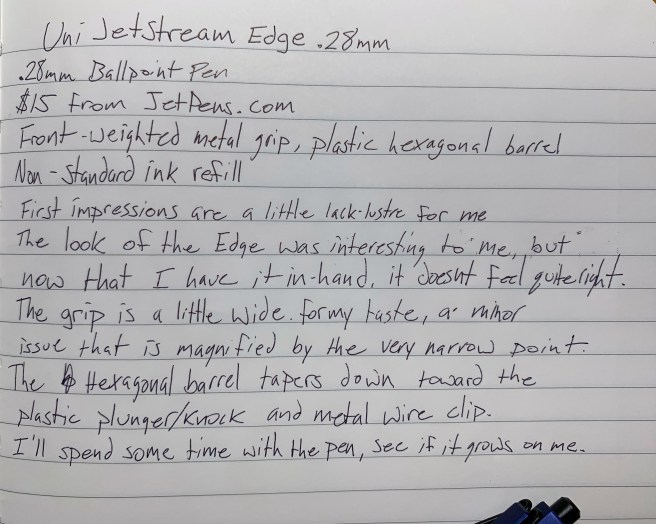 Uni JetStream Edge .28mm
.28mm Ballpoint Pen
$15 from JetPens.com
Front-weighted metal grip, plastic hexagonal barrel
Non-standard ink refill
First impressions are a little lack-lustre for me
The look of the Edge was interesting to me, but
now that I have it in-hand, it doesnt feel quite right.
The grip is a little wide for my taste, a minor
issue that is magnified by the very narrow point.
The Hexagonal barrel tapers down toward the
plastic plunger/knock and metal wire clip.
I'll spend some time with the pen, see if it grows on me.